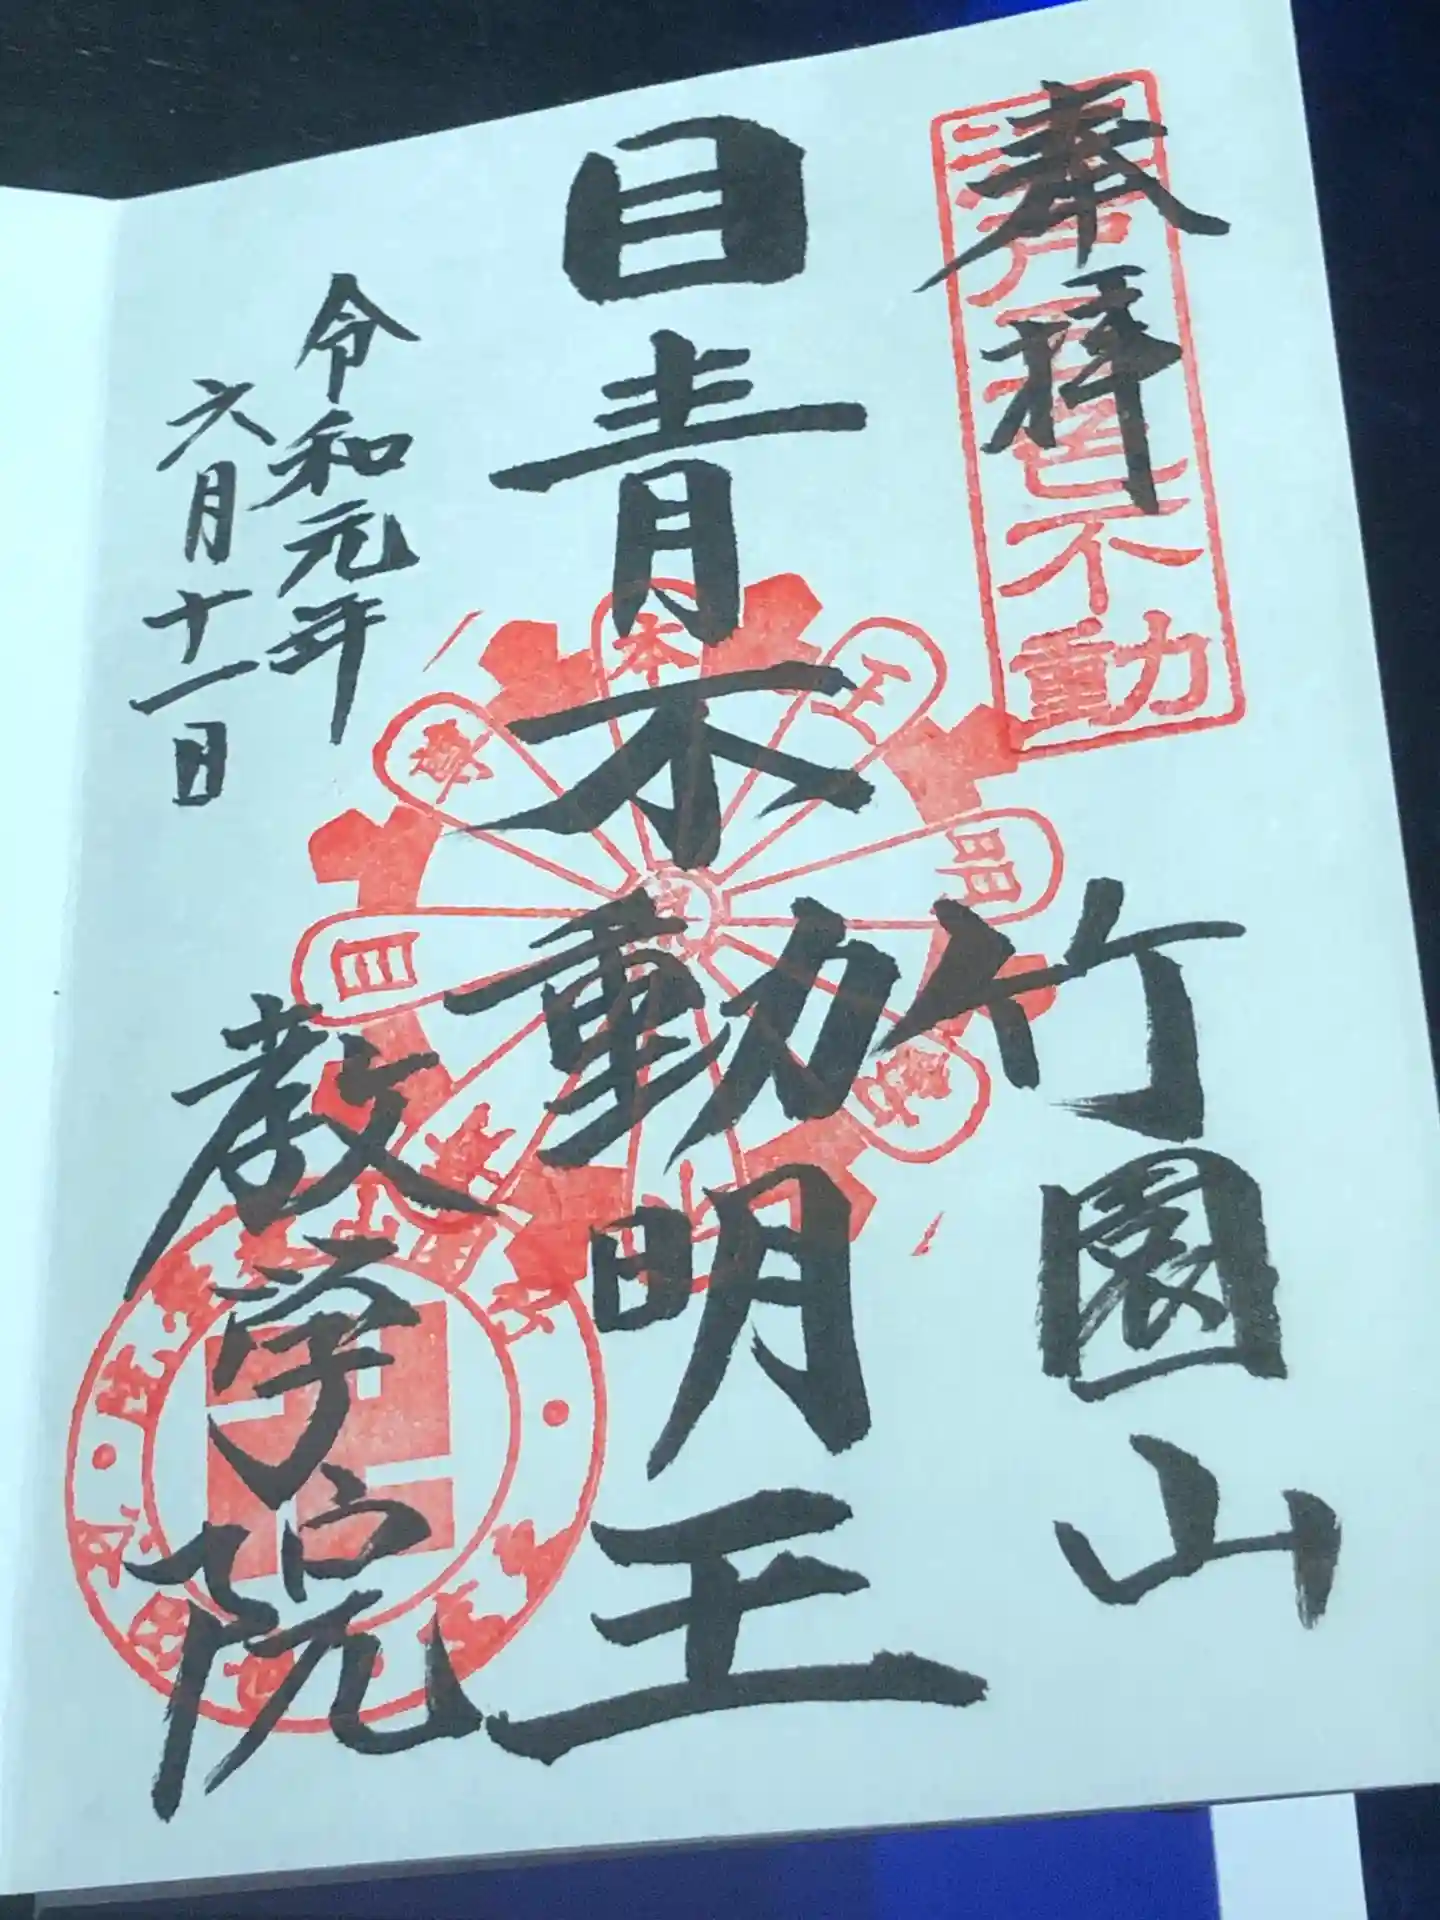 奉拝
江戸五色不動
竹園山
目青不動明王
令和元年
六月十一日
教学院